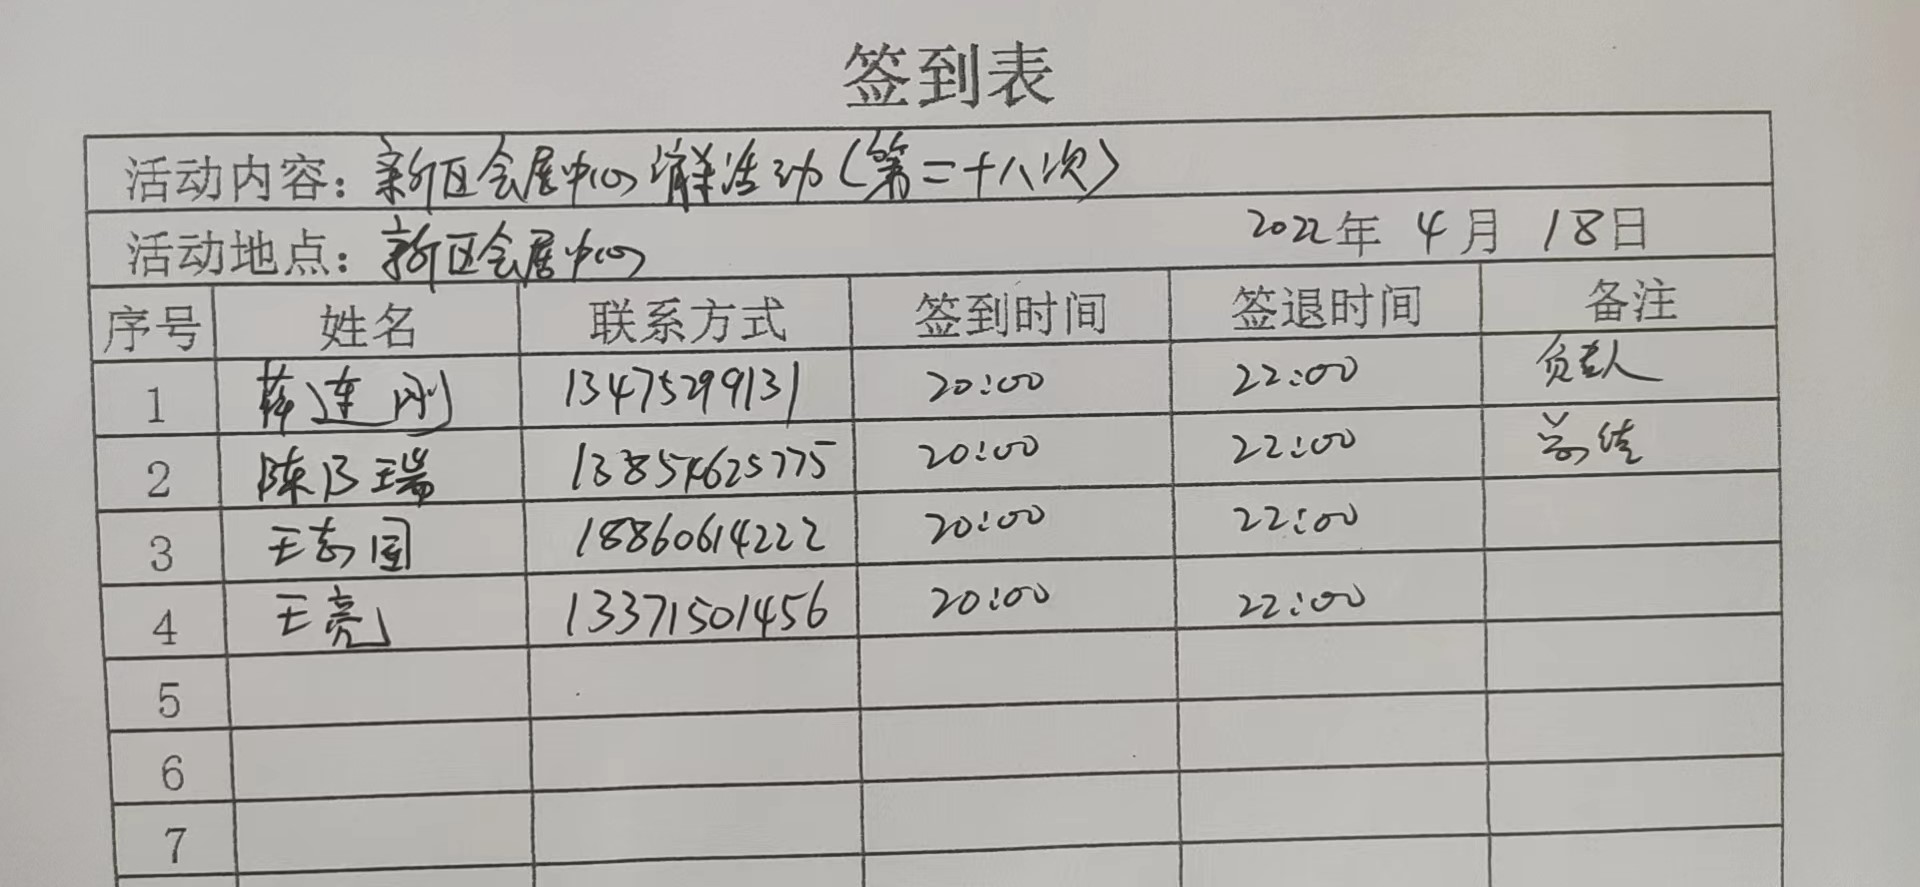 签到表
活动内容：新区会展中心消杀活动（第二十八次）
活动地点：新区会展中心 2022年 4月 18日
序号 姓名 联系方式 签到时间 签退时间 备注
1 薛连刚 13475299131 20:00 22:00 负责人
2 陈乃瑞 13854625775 20:00 22:00
3 王志国 18860614222 20:00 22:00
4 王亮 13371501456 20:00 22:00
5
6
7